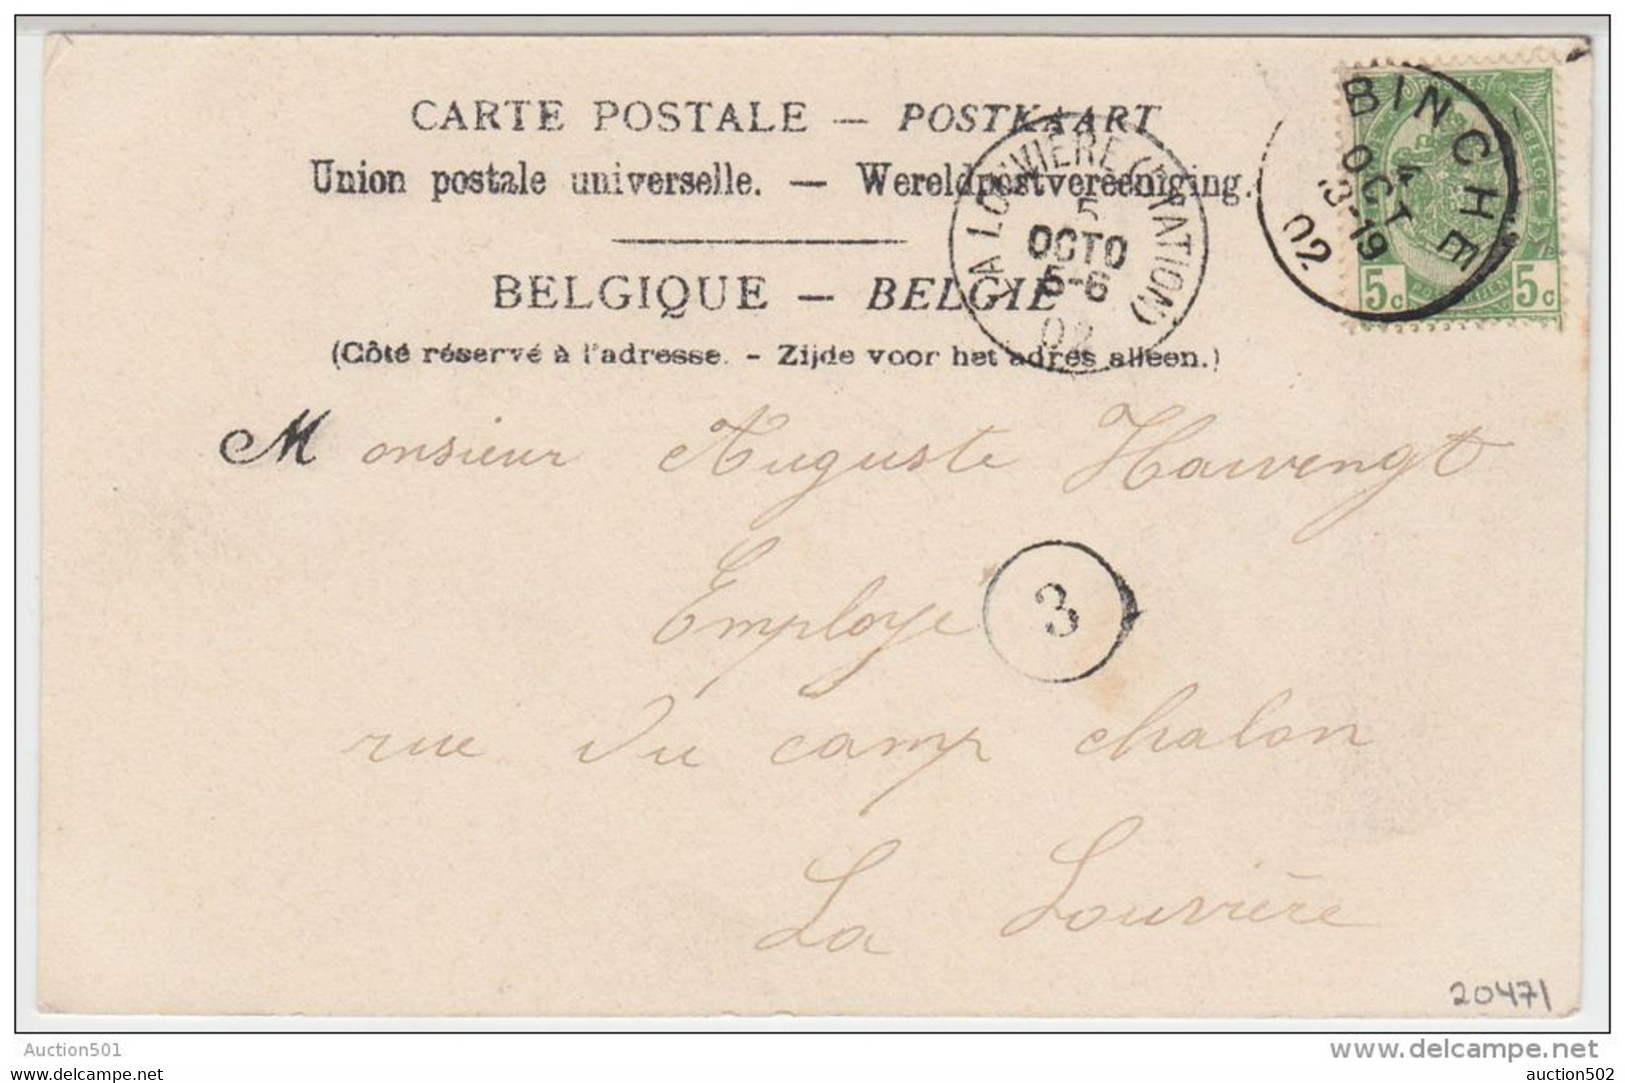 CARTE POSTALE — POSTKAART
Union postale universelle. — Wereldpostvereeniging.
BELGIQUE — BELGIE
(Côté réservé à l'adresse. - Zijde voor het adres alleen.)
LA LOUVIÈRE (STATION)
5
OCTO
5-6
02
BINCHE
4
OCT
18-19
02
POSTES
BELGE
5c 5c
Monsieur Auguste Hawengt
Employe
3
rue du camp chalon
La Louvière
20471
Auction501
www.delcampe.net
auction502